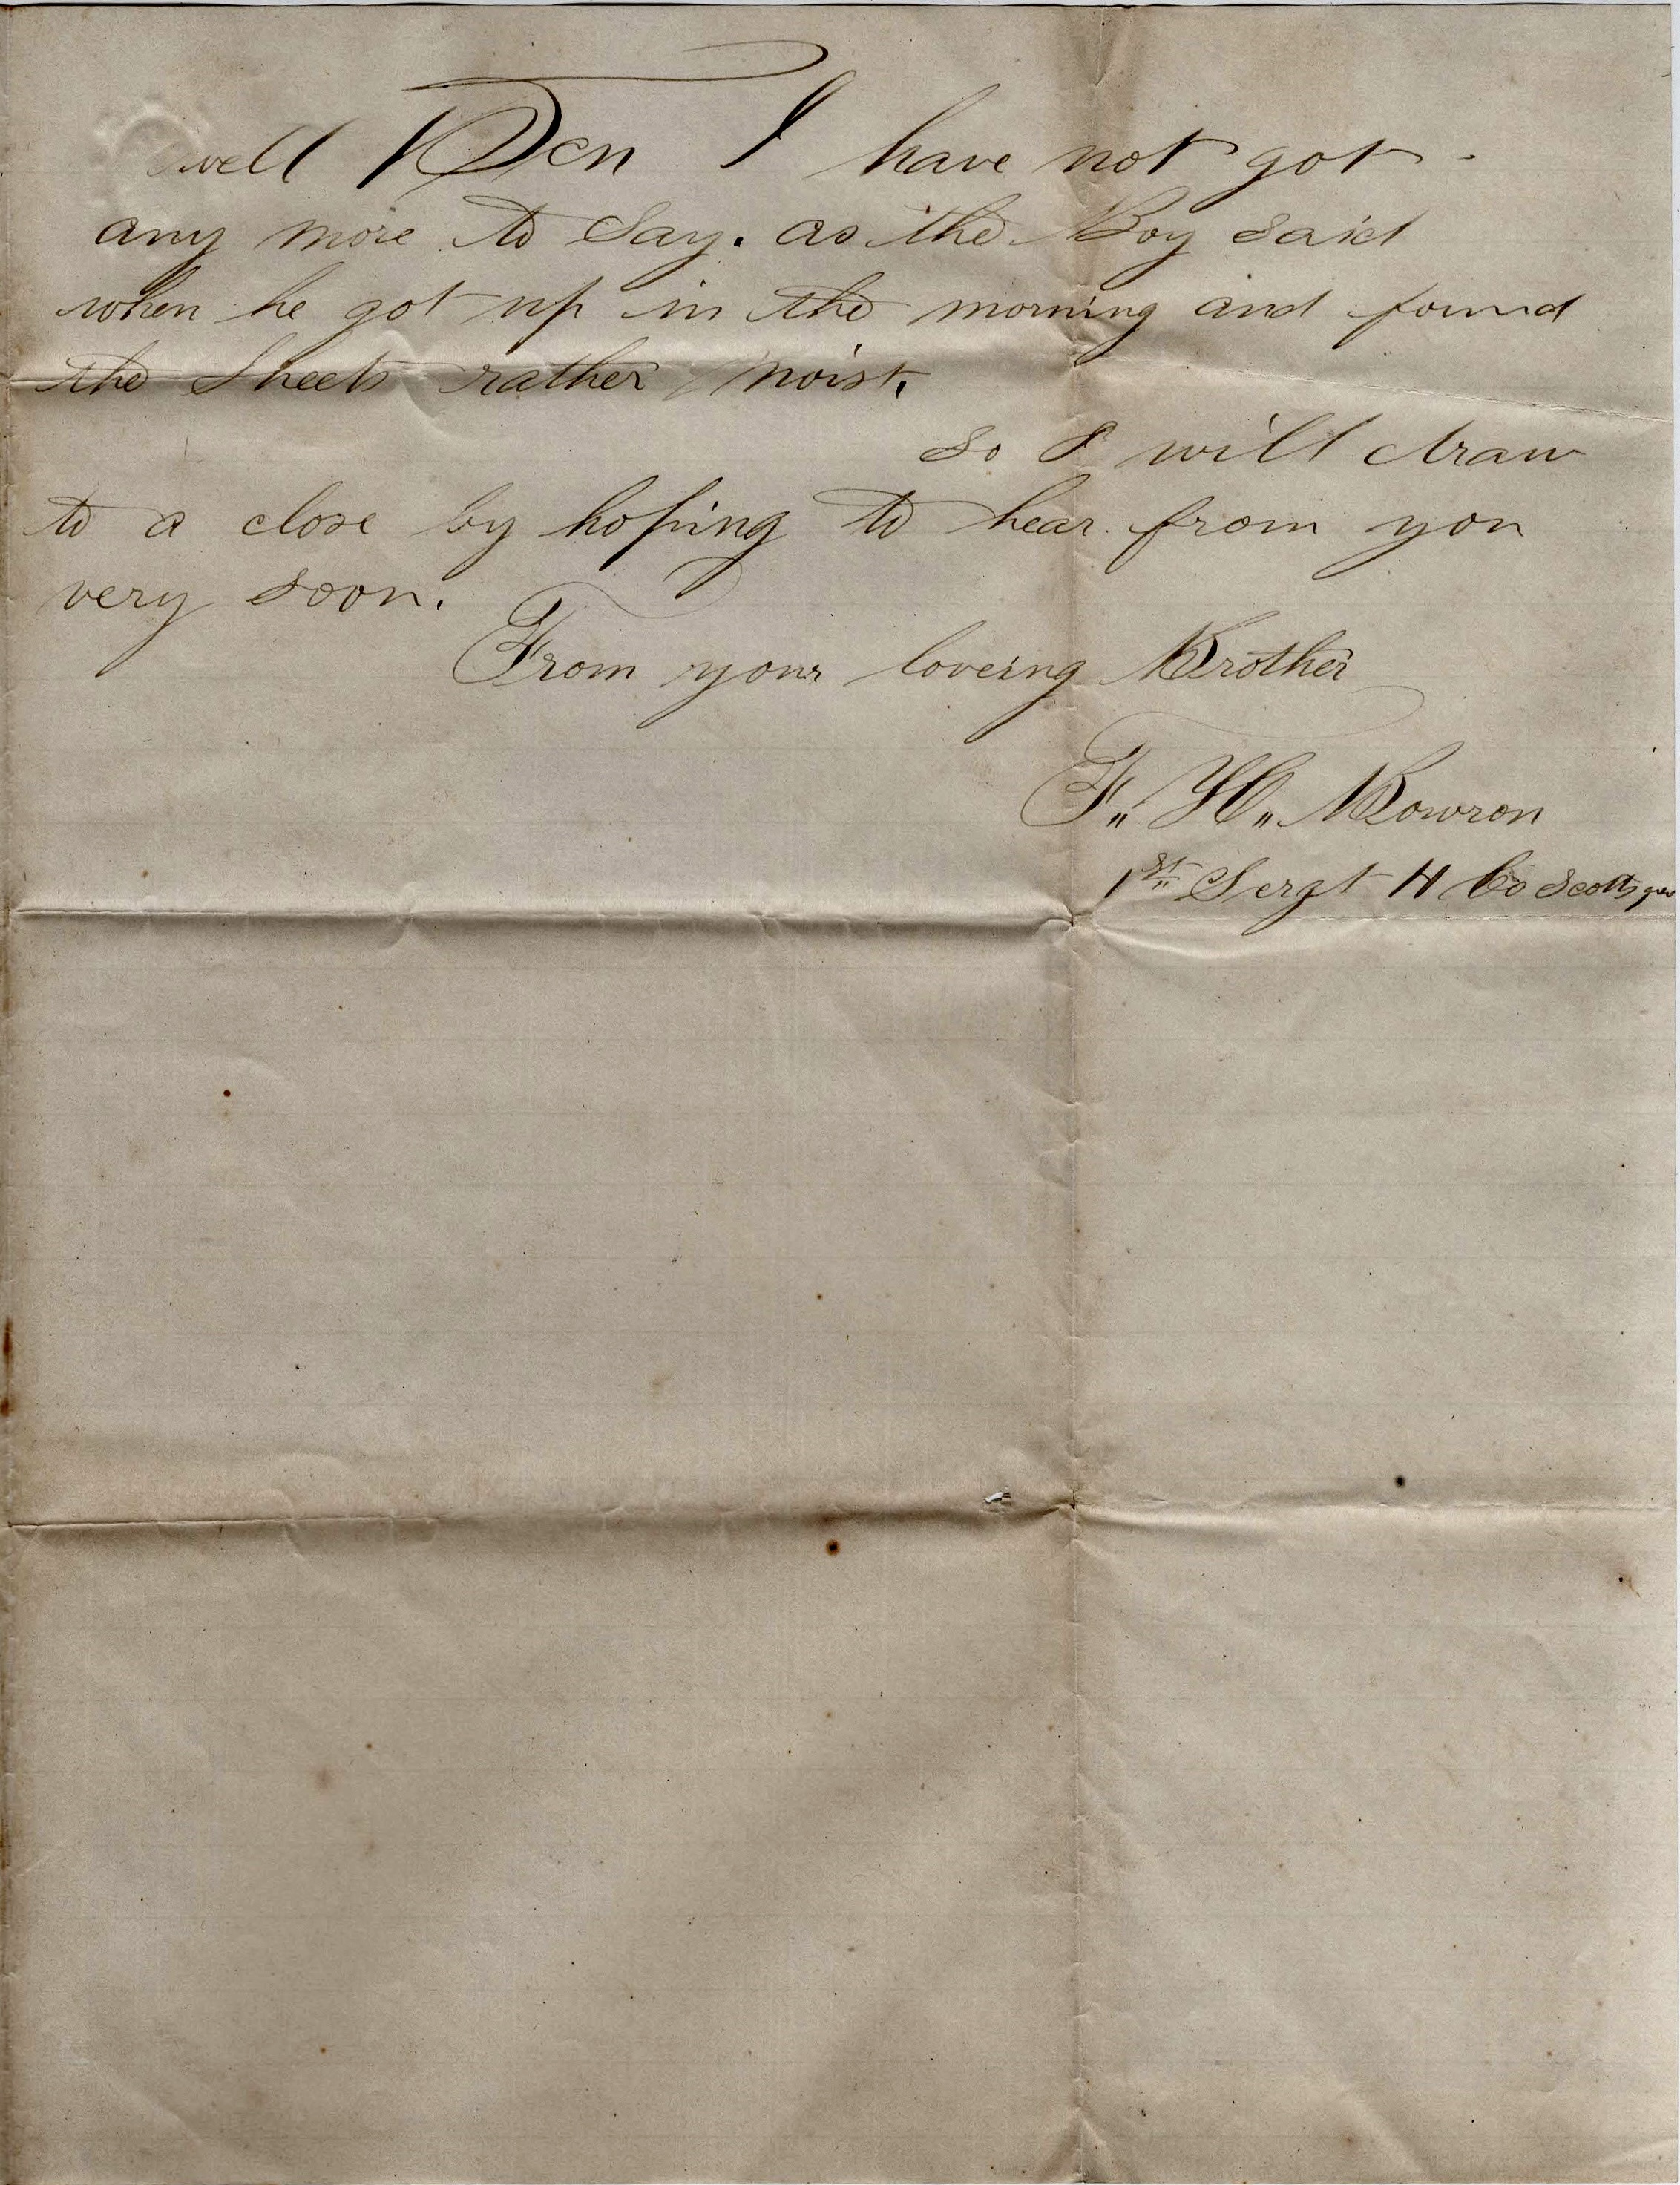 well Den I have not got
any more to Say. as the Boy said
when he got up in the morning and found
the Sheets rather moist.
so I will draw
to a close by hoping to hear from you
very soon.
From your loveing Brother
F. H. Bowron
1st Sergt H Co Scotts